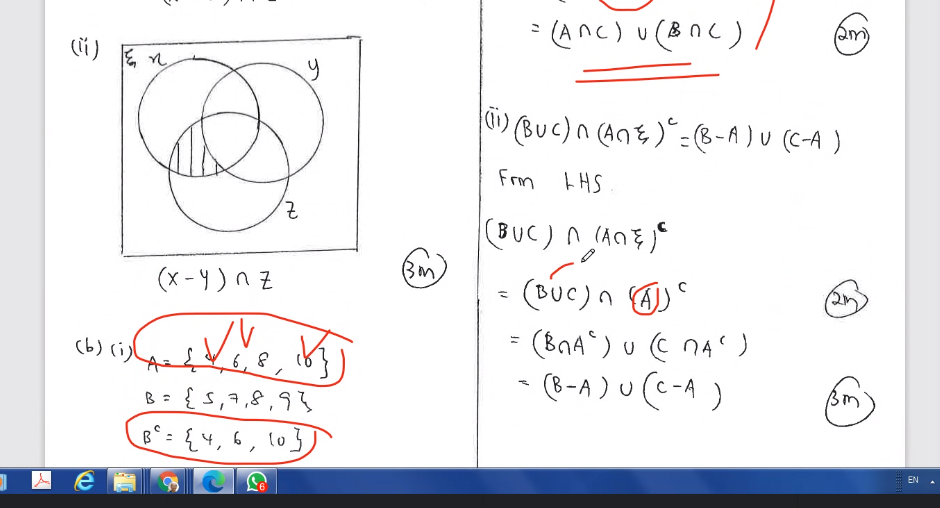 (ii)
ξ x
y
z
(x - y) ∩ z
3m
(b) (i) A = { 4, 6, 8, 10 }
B = { 5, 7, 8, 9 }
Bᶜ = { 4, 6, 10 }
= (A ∩ C) ∪ (B ∩ C)
2m
(ii) (B ∪ C) ∩ (A ∩ ξ)ᶜ = (B - A) ∪ (C - A)
From LHS.
(B ∪ C) ∩ (A ∩ ξ)ᶜ
= (B ∪ C) ∩ (A)ᶜ
2m
= (B ∩ Aᶜ) ∪ (C ∩ Aᶜ)
= (B - A) ∪ (C - A)
3m
6
EN